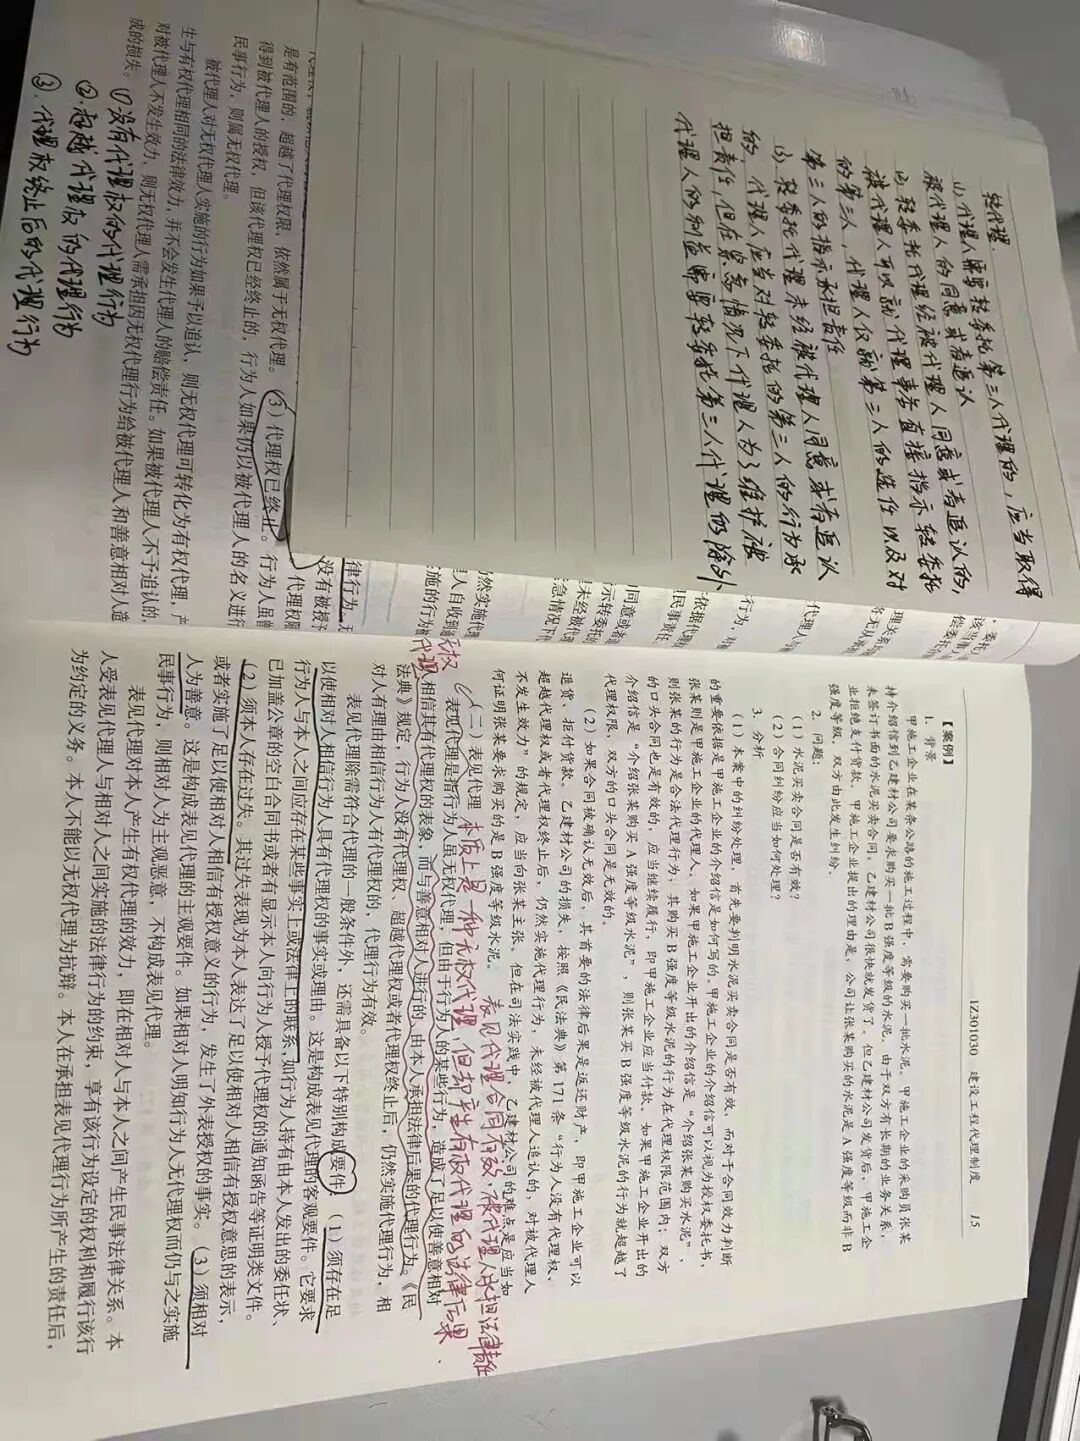 转代理.
(1).代理人需要转委托第三人代理的，应当取得
被代理人的同意或者追认
(2).转委托代理经被代理人同意或者追认的，
被代理人可以就代理事务直接指示转委托
的第三人，代理人仅就第三人的选任以及对
第三人的指示承担责任
(3).转委托代理未经被代理人同意或者追认
的，代理人应当对转委托的第三人的行为承
担责任，但在紧急情况下代理人为了维护被
代理人的利益需要转委托第三人代理的除外
是有范围的，超越了代理权限，依然属于无权代理。（3）代理权已终止。行为人虽曾
得到被代理人的授权，但该代理权已经终止的，行为人如果仍以被代理人的名义进行
民事行为，则属无权代理。
被代理人对无权代理人实施的行为如果予以追认，则无权代理可转化为有权代理，产
生与有权代理相同的法律效力，并不会发生代理人的赔偿责任。如果被代理人不予追认的，
对被代理人不发生效力，则无权代理人需承担因无权代理行为给被代理人和善意相对人造
成的损失。
①没有代理权的代理行为
②.超越代理权的代理行为
③.代理权终止后的代理行为
1Z301030 建设工程代理制度 15
【案例】
1. 背景
甲施工企业在某条公路的施工过程中，需要购买一批水泥。甲施工企业的采购员张某
持介绍信到乙建材公司要求购买一批B强度等级的水泥。由于双方有长期的业务关系，
未签订书面的水泥买卖合同，乙建材公司很快就发货了。但乙建材公司发货后，甲施工企
业拒绝支付货款。甲施工企业提出的理由是，公司让张某购买的水泥是A强度等级而非B
强度等级。双方由此发生纠纷。
2. 问题：
（1）水泥买卖合同是否有效？
（2）合同纠纷应当如何处理？
3. 分析
（1）本案中的纠纷处理，首先要判明水泥买卖合同是否有效，而对于合同效力判断
的重要依据是甲施工企业的介绍信是如何写的。甲施工企业的介绍信可以视为授权委托书，
张某则是甲施工企业的代理人。如果甲施工企业开出的介绍信是“介绍张某购买水泥”，
则张某的行为是合法代理行为，其购买B强度等级水泥的行为在代理权限范围内；双方
的口头合同也是有效的，应当继续履行，即甲施工企业应当付款。如果甲施工企业开出的
介绍信是“介绍张某购买A强度等级水泥”，则张某买B强度等级水泥的行为就超越了
代理权限，双方的口头合同是无效的。
（2）如果合同被确认无效后，其首要的法律后果是返还财产，即甲施工企业可以
退货、拒付货款。乙建材公司的损失，按照《民法典》第171条“行为人没有代理权、
超越代理权或者代理权终止后，仍然实施代理行为，未经被代理人追认的，对被代理人
不发生效力”的规定，应当向张某主张。但在司法实践中，乙建材公司的难点是应当如
何证明张某要求购买的是B强度等级水泥。
表见代理合同有效，被代理人承担法律责任
（二）表见代理
本质上是一种无权代理，但却产生有权代理的法律后果.
无权代理
表见代理是指行为人虽无权代理，但由于行为人的某些行为，造成了足以使善意相对
人相信其有代理权的表象，而与善意相对人进行的、由本人承担法律后果的代理行为。《民
法典》规定，行为人没有代理权、超越代理权或者代理权终止后，仍然实施代理行为，相
对人有理由相信行为人有代理权的，代理行为有效。
表见代理除需符合代理的一般条件外，还需具备以下特别构成要件：（1）须存在足
以使相对人相信行为人具有代理权的事实或理由。这是构成表见代理的客观要件。它要求
行为人与本人之间应存在某些事实上或法律上的联系，如行为人持有由本人发出的委任状、
已加盖公章的空白合同书或者有显示本人向行为人授予代理权的通知函告等证明类文件。
（2）须本人存在过失。其过失表现为本人表达了足以使相对人相信有授权意思的表示，
或者实施了足以使相对人相信有授权意义的行为，发生了外表授权的事实。（3）须相对
人为善意。这是构成表见代理的主观要件。如果相对人明知行为人无代理权而仍与之实施
民事行为，则相对人为主观恶意，不构成表见代理。
表见代理对本人产生有权代理的效力，即在相对人与本人之间产生民事法律关系。本
人受表见代理人与相对人之间实施的法律行为的约束，享有该行为设定的权利和履行该行
为约定的义务。本人不能以无权代理为抗辩。本人在承担表见代理行为所产生的责任后，